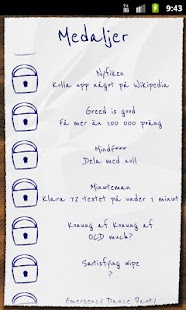 9:43
Medaljer
Nyfiken
Kolla upp något på Wikipedia
Greed is good
Få mer än 100 000 poäng
Mindf***
Dela med noll
Minuteman
Klara 72 testet på under 1 minut
Konung af Konung af
OCD much?
Satisfying wipe
?
Emergency Dance Party